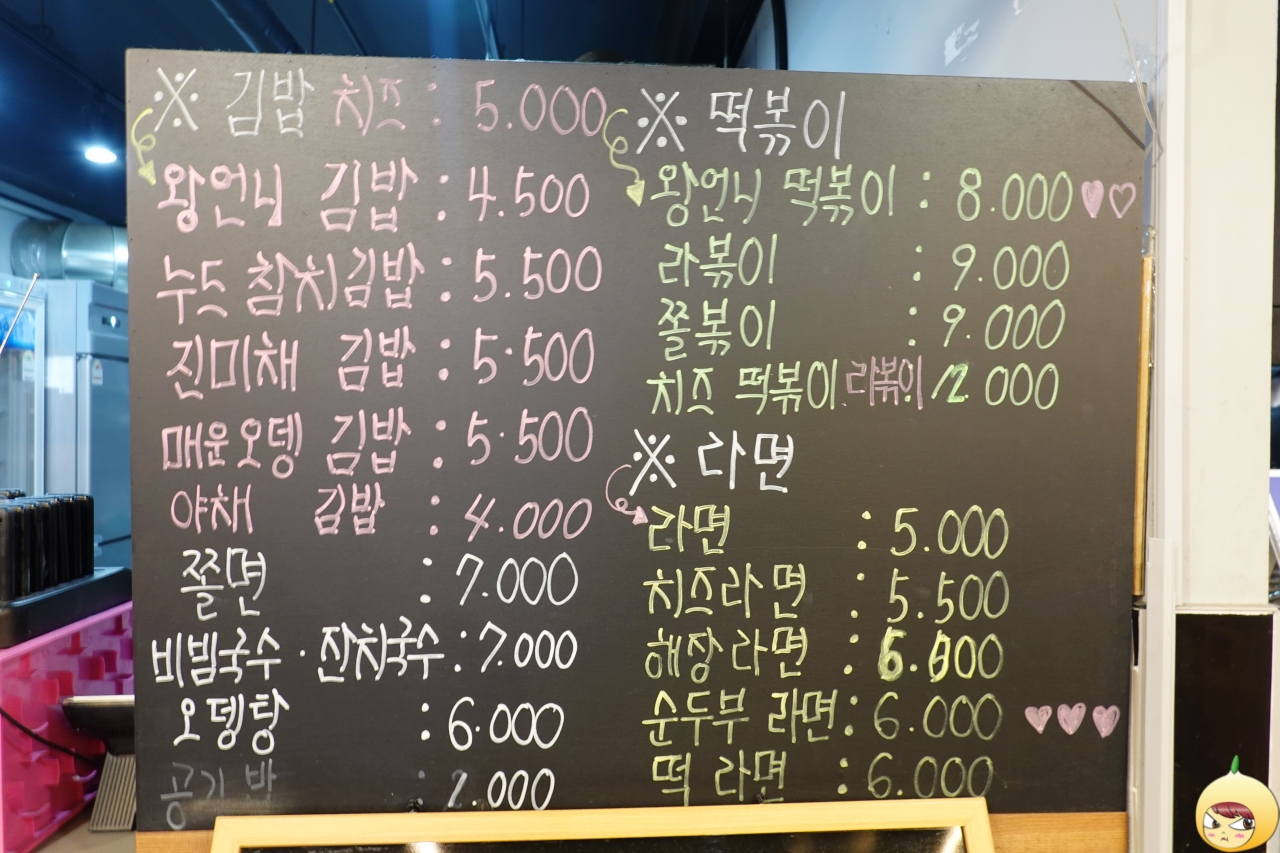 ※ 김밥 치즈 : 5.000
왕언니 김밥 : 4.500
누드 참치김밥 : 5.500
진미채 김밥 : 5.500
매운오뎅 김밥 : 5.500
야채 김밥 : 4.000
쫄면 : 7.000
비빔국수 · 잔치국수 : 7.000
오뎅탕 : 6.000
공기밥 : 2.000
※ 떡볶이
왕언니 떡볶이 : 8.000
라볶이 : 9.000
쫄볶이 : 9.000
치즈 떡볶이 라볶이 12.000
※ 라면
라면 : 5.000
치즈라면 : 5.500
해장라면 : 6.000
순두부 라면 : 6.000
떡 라면 : 6.000